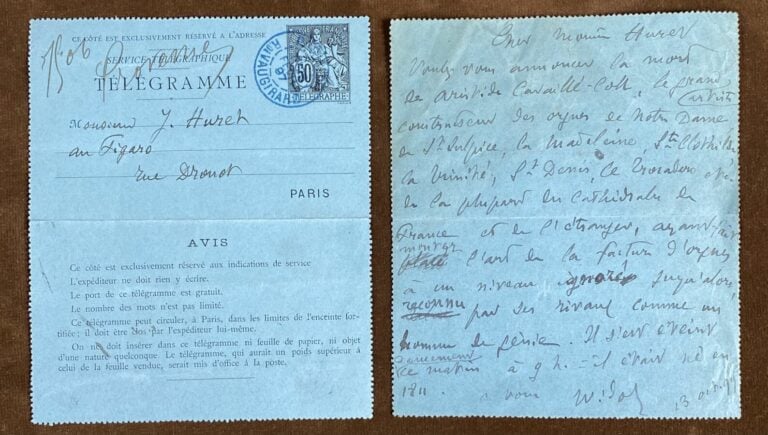 CE CÔTÉ EST EXCLUSIVEMENT RÉSERVÉ A L'ADRESSE
SERVICE TÉLÉGRAPHIQUE
TÉLÉGRAMME
50
TÉLÉGRAPHE
R. VAUGIRARD
Monsieur J. Huret
au Figaro
rue Drouot
PARIS
AVIS
Ce côté est exclusivement réservé aux indications de service
L'expéditeur ne doit rien y écrire.
Le port de ce télégramme est gratuit.
Le nombre des mots n'est pas limité.
Ce télégramme peut circuler, à Paris, dans les limites de l'enceinte for-
tifiée ; il doit être clos par l'expéditeur lui-même.
On ne doit insérer dans ce télégramme ni feuille de papier, ni objet
d'une nature quelconque. Le télégramme, qui aurait un poids supérieur à
celui de la feuille vendue, serait mis d'office à la poste.
Cher Monsieur Huret
Voulez vous annoncer la mort
de Aristide Cavaillé-Coll, le grand artiste
constructeur des orgues de Notre Dame
de St Sulpice, la Madeleine, Ste Clothilde
la Trinité, St Denis, le Trocadéro et
de la plupart des Cathédrales de
France et de l'étranger, ayant fait
monter l'art de la facture d'orgues
à un niveau ignoré jusqu'alors,
reconnu par ses rivaux comme un
homme de génie. Il s'est éteint
doucement
ce matin à 9 h. = il était né en
1811.
à vous